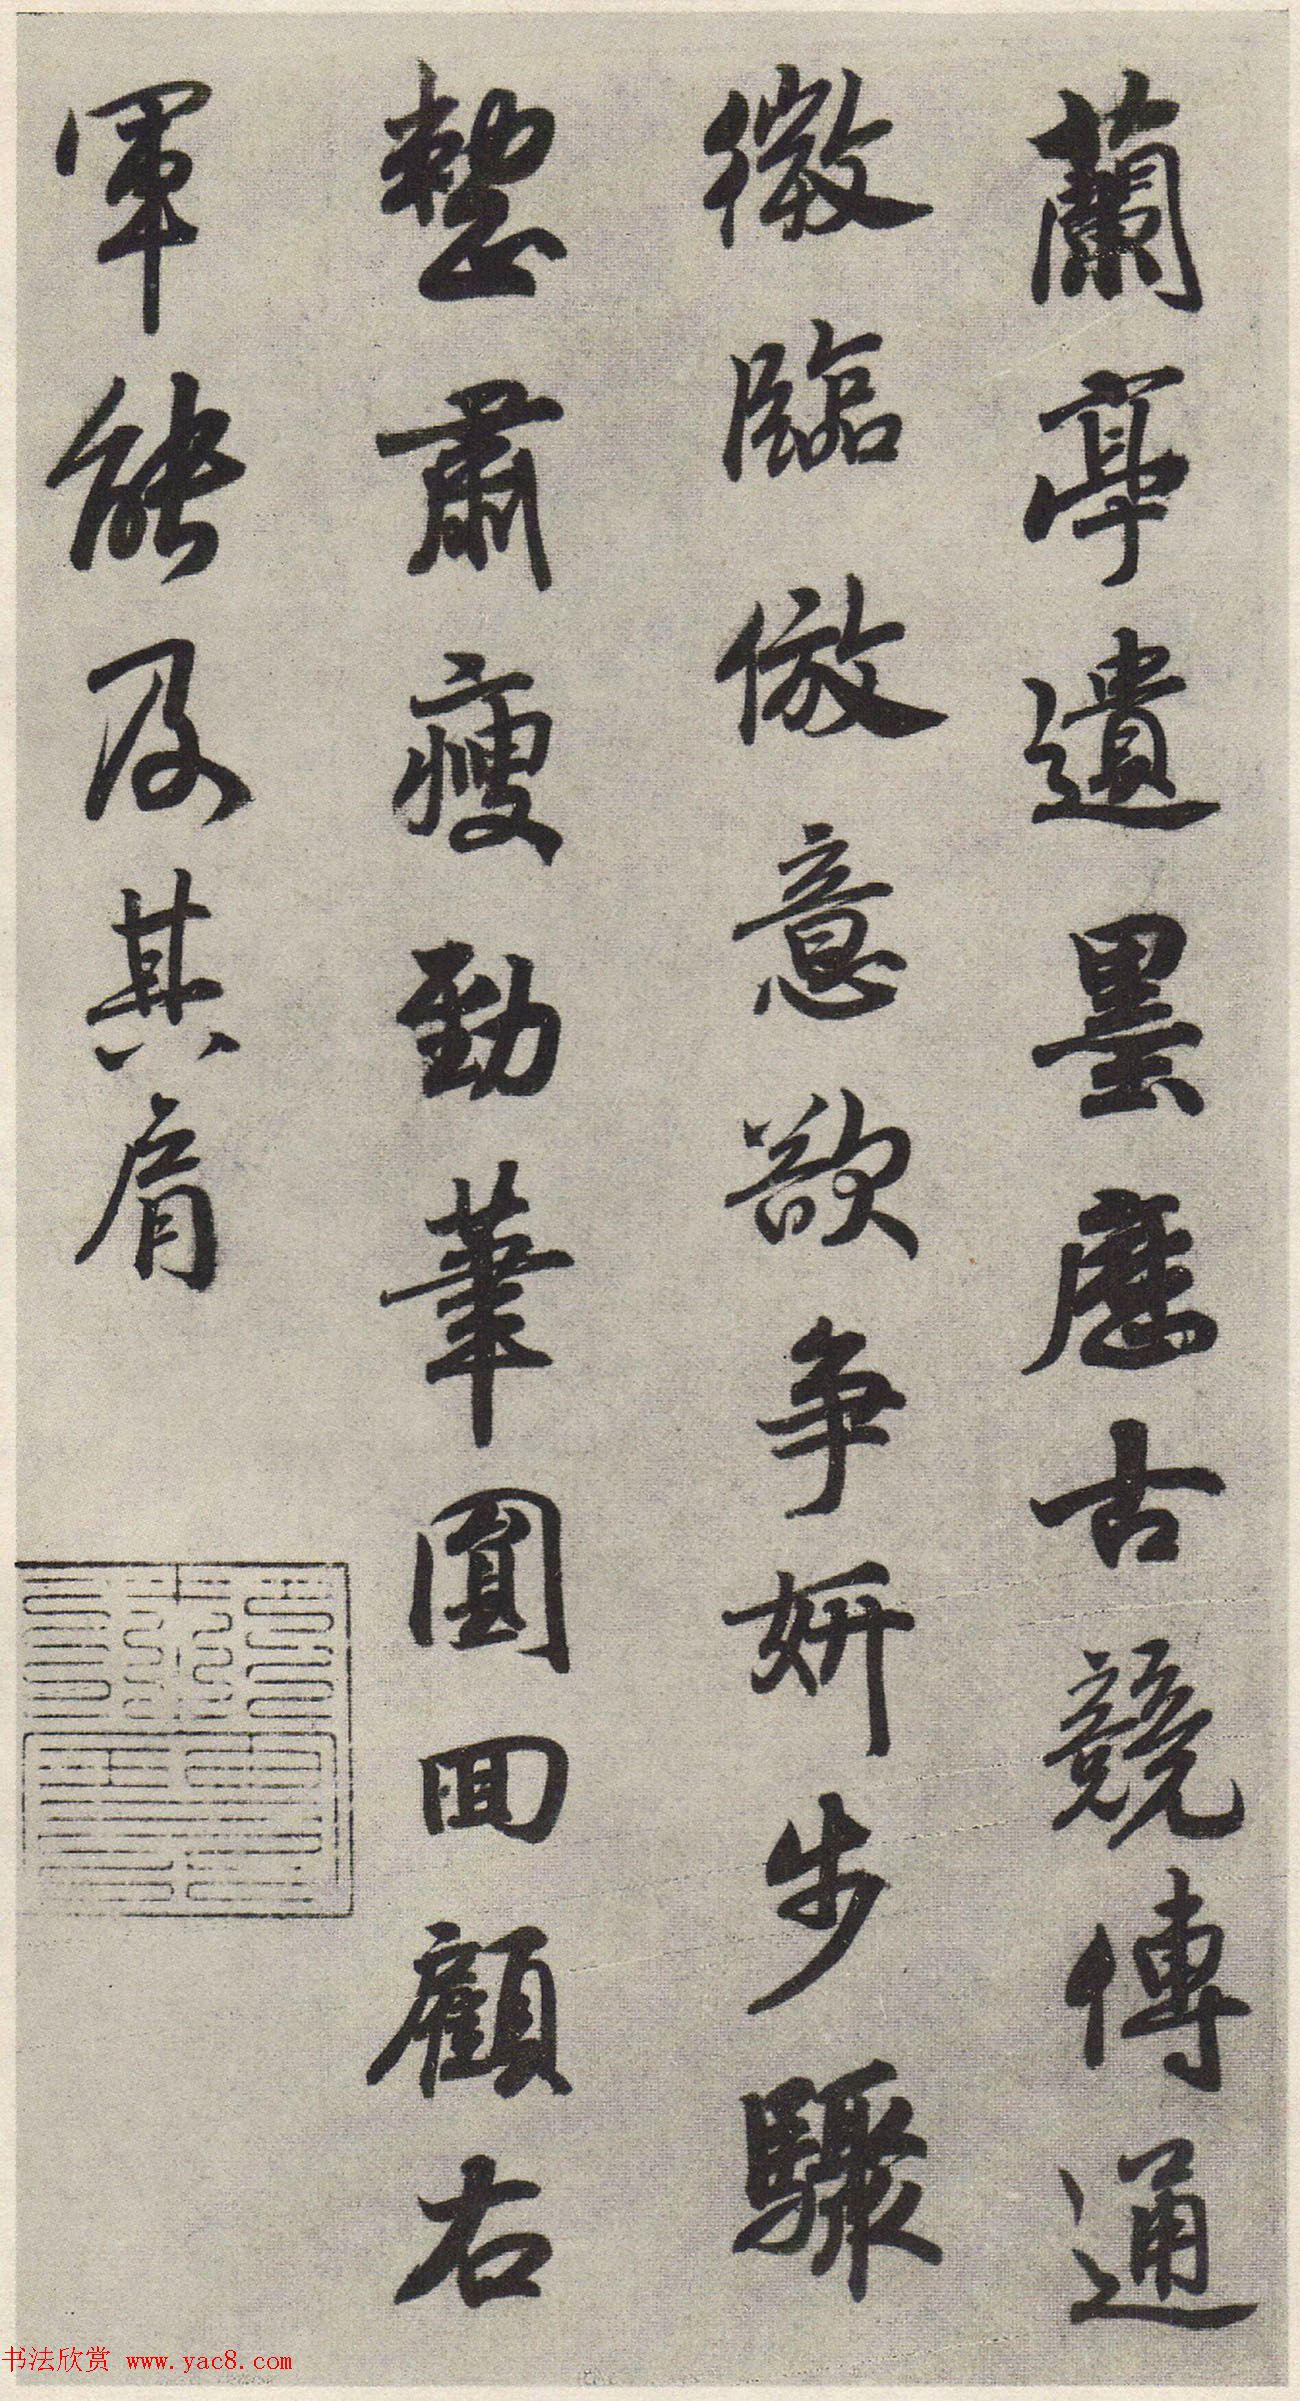 蘭亭遺墨歷古競傳通
微臨倣意欲爭妍步驟
整肅瘦勁華圓回顧右
軍能及其肩
书法欣赏 www.yac8.com